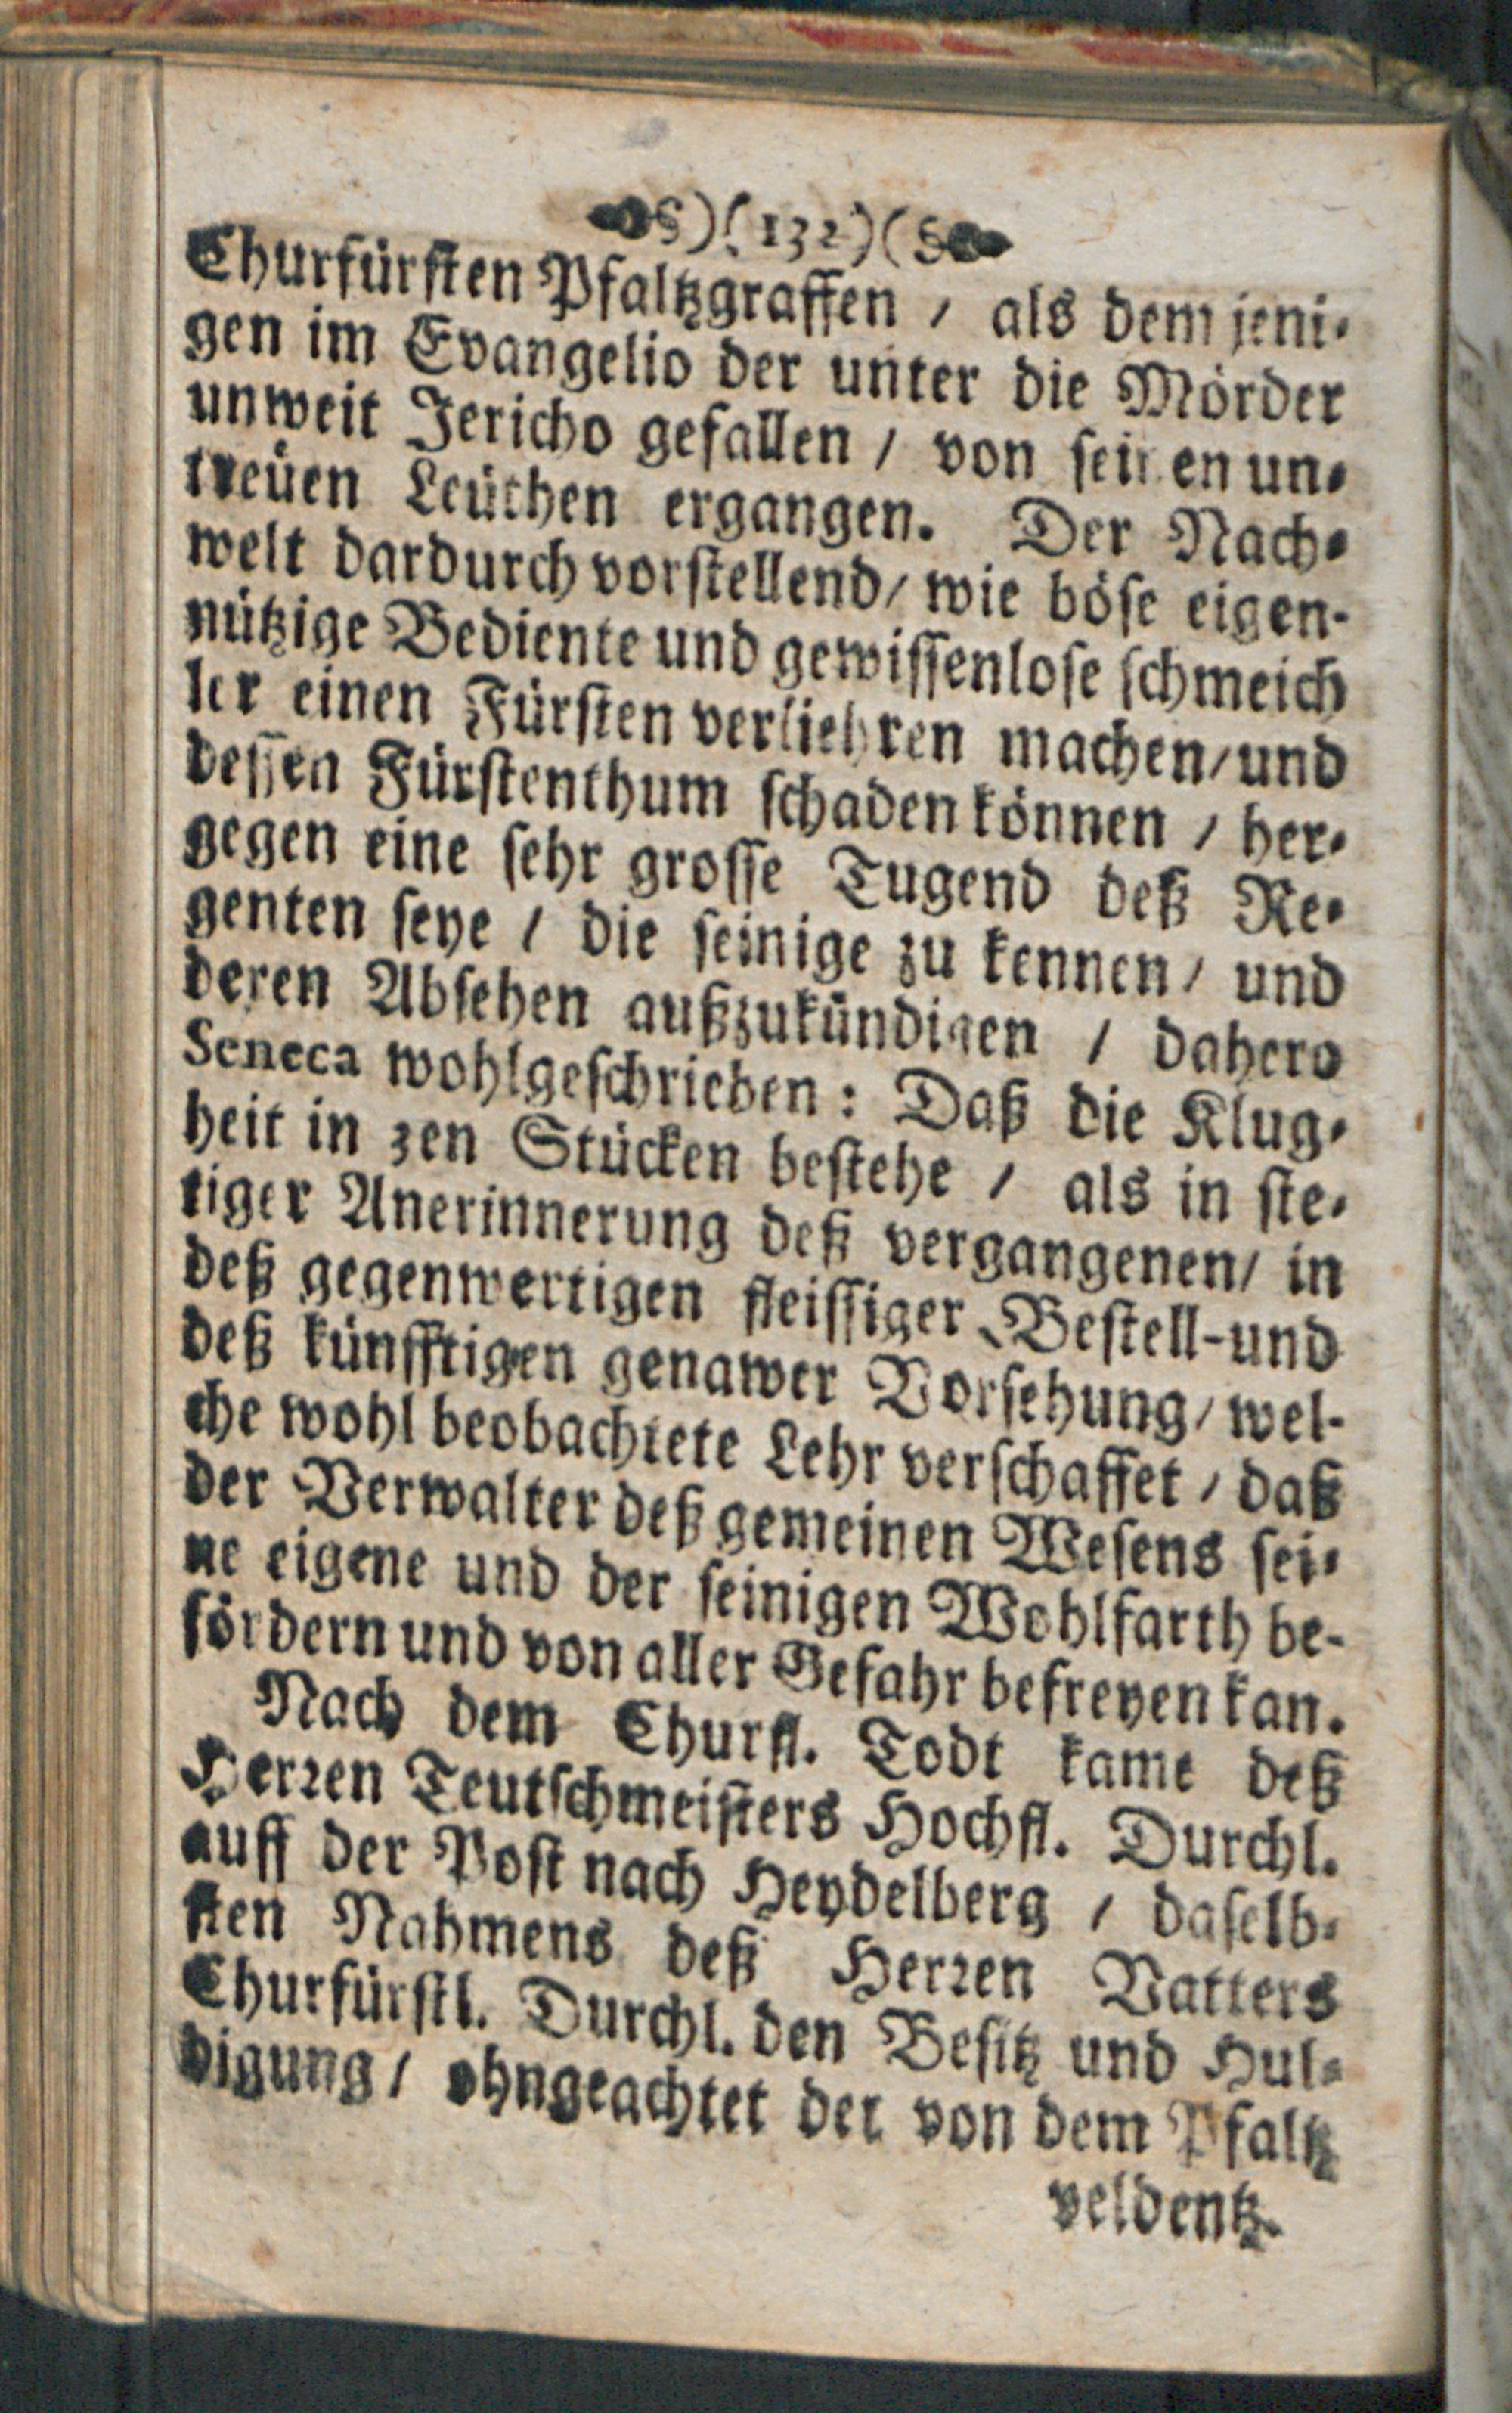 §)(132)(§
Churfürsten Pfaltzgraffen / als dem jeni-
gen im Evangelio der unter die Mörder
unweit Jericho gefallen / von seinen un-
treüen Leüthen ergangen. Der Nach-
welt dardurch vorstellend / wie böse eigen-
nützige Bediente und gewissenlose schmeich
ler einen Fürsten verliehren machen / und
dessen Fürstenthum schaden können / her-
gegen eine sehr grosse Tugend deß Re-
genten seye / die seinige zu kennen / und
deren Absehen außzukündigen / dahero
Seneca wohlgeschrieben: Daß die Klug-
heit in 3en Stücken bestehe / als in ste-
tiger Anerinnerung deß vergangenen / in
deß gegenwertigen fleissiger Bestell-und
deß künfftigen genawer Vorsehung / wel-
che wohl beobachtete Lehr verschaffet / daß
der Verwalter deß gemeinen Wesens sei-
ne eigene und der seinigen Wohlfarth be-
fördern und von aller Gefahr befreyen kan.
Nach dem Churfl. Todt kame deß
Herren Teutschmeisters Hochfl. Durchl.
auff der Post nach Heydelberg / daselb-
sten Nahmens deß Herren Vatters
Churfürstl. Durchl. den Besitz und Hul-
digung / ohngeachtet der von dem Pfaltz
veldentz-